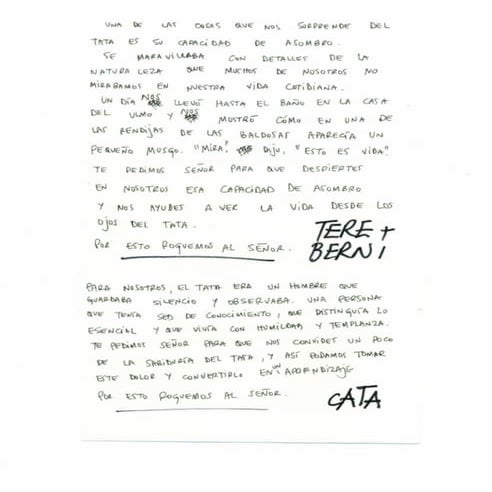 UNA DE LAS COSAS QUE NOS SORPRENDE DEL
TATA ES SU CAPACIDAD DE ASOMBRO.
SE MARAVILLABA CON DETALLES DE LA
NATURALEZA QUE MUCHOS DE NOSOTROS NO
MIRABAMOS EN NUESTRA VIDA COTIDIANA.
UN DÍA NOS LLEVÓ HASTA EL BAÑO EN LA CASA
DEL ULMO Y NOS MOSTRÓ CÓMO EN UNA DE
LAS RENDIJAS DE LAS BALDOSAS APARECÍA UN
PEQUEÑO MUSGO. "MIRA", DIJO, "ESTO ES VIDA".
TE PEDIMOS SEÑOR PARA QUE DESPIERTES
EN NOSOTROS ESA CAPACIDAD DE ASOMBRO
Y NOS AYUDES A VER LA VIDA DESDE LOS
OJOS DEL TATA.
POR ESTO ROGUEMOS AL SEÑOR.
TERE +
BERNI
PARA NOSOTROS, EL TATA ERA UN HOMBRE QUE
GUARDABA SILENCIO Y OBSERVABA. UNA PERSONA
QUE TENÍA SED DE CONOCIMIENTO, QUE DISTINGUÍA LO
ESENCIAL Y QUE VIVÍA CON HUMILDAD Y TEMPLANZA.
TE PEDIMOS SEÑOR PARA QUE NOS CONVIDES UN POCO
DE LA SABIDURÍA DEL TATA, Y ASÍ PODAMOS TOMAR
ESTE DOLOR Y CONVERTIRLO EN UN APRENDIZAJE
POR ESTO ROGUEMOS AL SEÑOR.
CATA